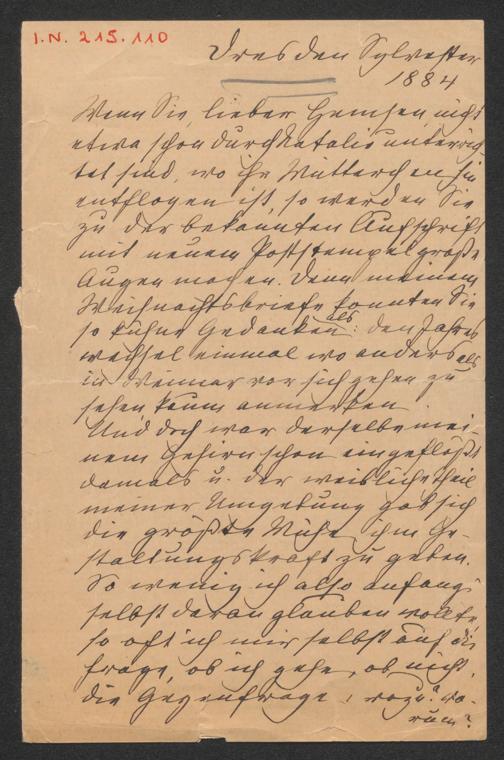 I.N. 215.110
Dresden Sylvester
1884
Wenn Sie, lieber Heinsen, nicht
etwa schon durch Natalie unterrich-
tet sind, wo ihr Mütterchen hin
entflogen ist, so werden Sie
zu der bekannten Aufschrift
mit neuem Poststempel große
Augen machen. Denn meinem
Weihnachtsbriefe konnten Sie
so kühne Gedanken als: den Jahres
wechsel einmal wo anders als
in Weimar vor sich gehen zu
sehen kaum anmerken.
Und doch war derselbe mei-
nem Gehirn schon eingeflößt
damals u. der weibliche Theil
meiner Umgebung gab sich
die größte Mühe ihm Ge-
staltungskraft zu geben.
So wenig ich also anfangs
selbst daran glauben wollte,
so oft ich mir selbst auf die
Frage, ob ich gehe, ob nicht,
die Gegenfrage, wozu? wa-
rum?